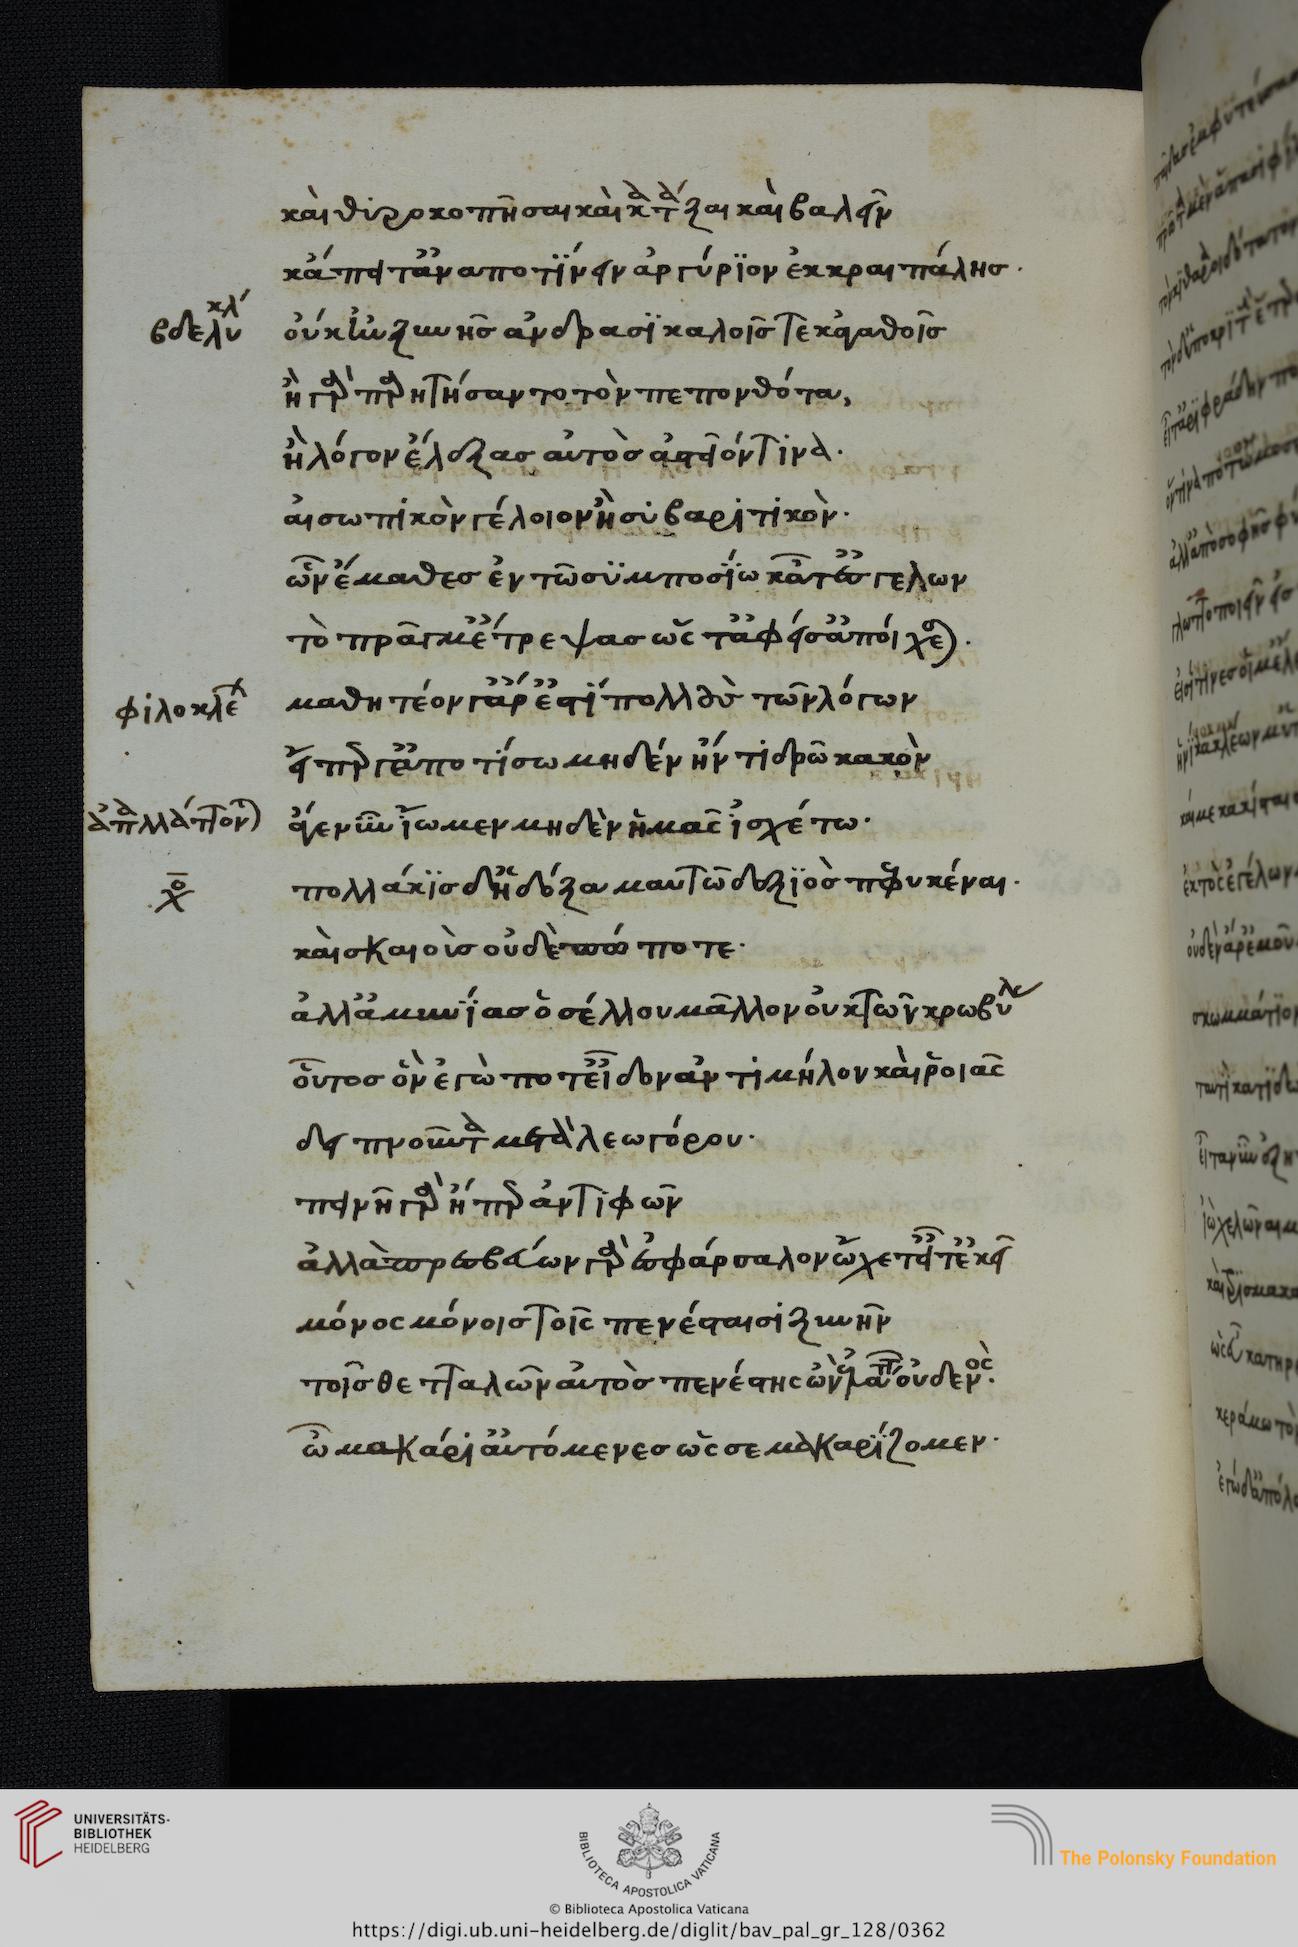 καὶ θυροκοπῆσαι καὶ πατάξαι καὶ βαλεῖν
κἄπειτ' ἀναποτίνειν ἀργύριον ἐκ κραιπάλης.
βδελυκλέ
οὔκ ἢν ξυνῆς ἀνδράσι καλοῖς τε κἀγαθοῖς
ἢ γὰρ παρῃτήσαντο τὸν πεπονθότα,
ἢ λόγον ἔλεξας αὐτὸς ἀστεῖόν τινα.
αἰσωπικὸν γέλοιον ἢ συβαριτικὸν.
ὧν ἔμαθες ἐν τῷ συμποσίῳ κᾆτ' ἐς γέλων
τὸ πρᾶγμ' ἔτρεψας ὥς τ' ἀφείς σ' ἀποίχεται.
φιλοκλέ
μαθητέον γὰρ ἐστὶ πολλοὺς τῶν λόγων
εἴπερ γ' ἀποτίσω μηδέν ἤν τι δρῶ κακὸν
ἄγε νῦν ἴωμεν μηδὲν ἡμᾶς ἰσχέτω.
χο
πολλάκις δὴ 'δοξ' ἐμαυτῷ δεξιὸς πεφυκέναι.
καὶ σκαιὸς οὐδεπώποτε.
ἀλλ' ἀμυνίας ὁ σέλλου μᾶλλον οὐκ τῶν κρωβύλ
οὗτος ὃν ἐγώ ποτ' εἶδον ἀντὶ μήλου καὶ ῥοιᾶς
δειπνοῦντα μετὰ λεωγόρου.
πεινῇ γὰρ ᾗπερ ἀντιφῶν
ἀλλὰ πρεσβεύων γὰρ ἐς φάρσαλον ᾤχετ' εἶτ' ἐκεῖ
μόνος μόνοις τοῖς πενέσταισι ξυνῆν
τοῖς θετταλῶν αὐτὸς πενέστης ὢν ἐλάττων οὐδενός.
ὦ μακάρι' αὐτόμενες ὥς σε μακαρίζομεν.
UNIVERSITÄTS-
BIBLIOTHEK
HEIDELBERG
BIBLIOTECA APOSTOLICA VATICANA
The Polonsky Foundation
© Biblioteca Apostolica Vaticana
https://digi.ub.uni-heidelberg.de/diglit/bav_pal_gr_128/0362